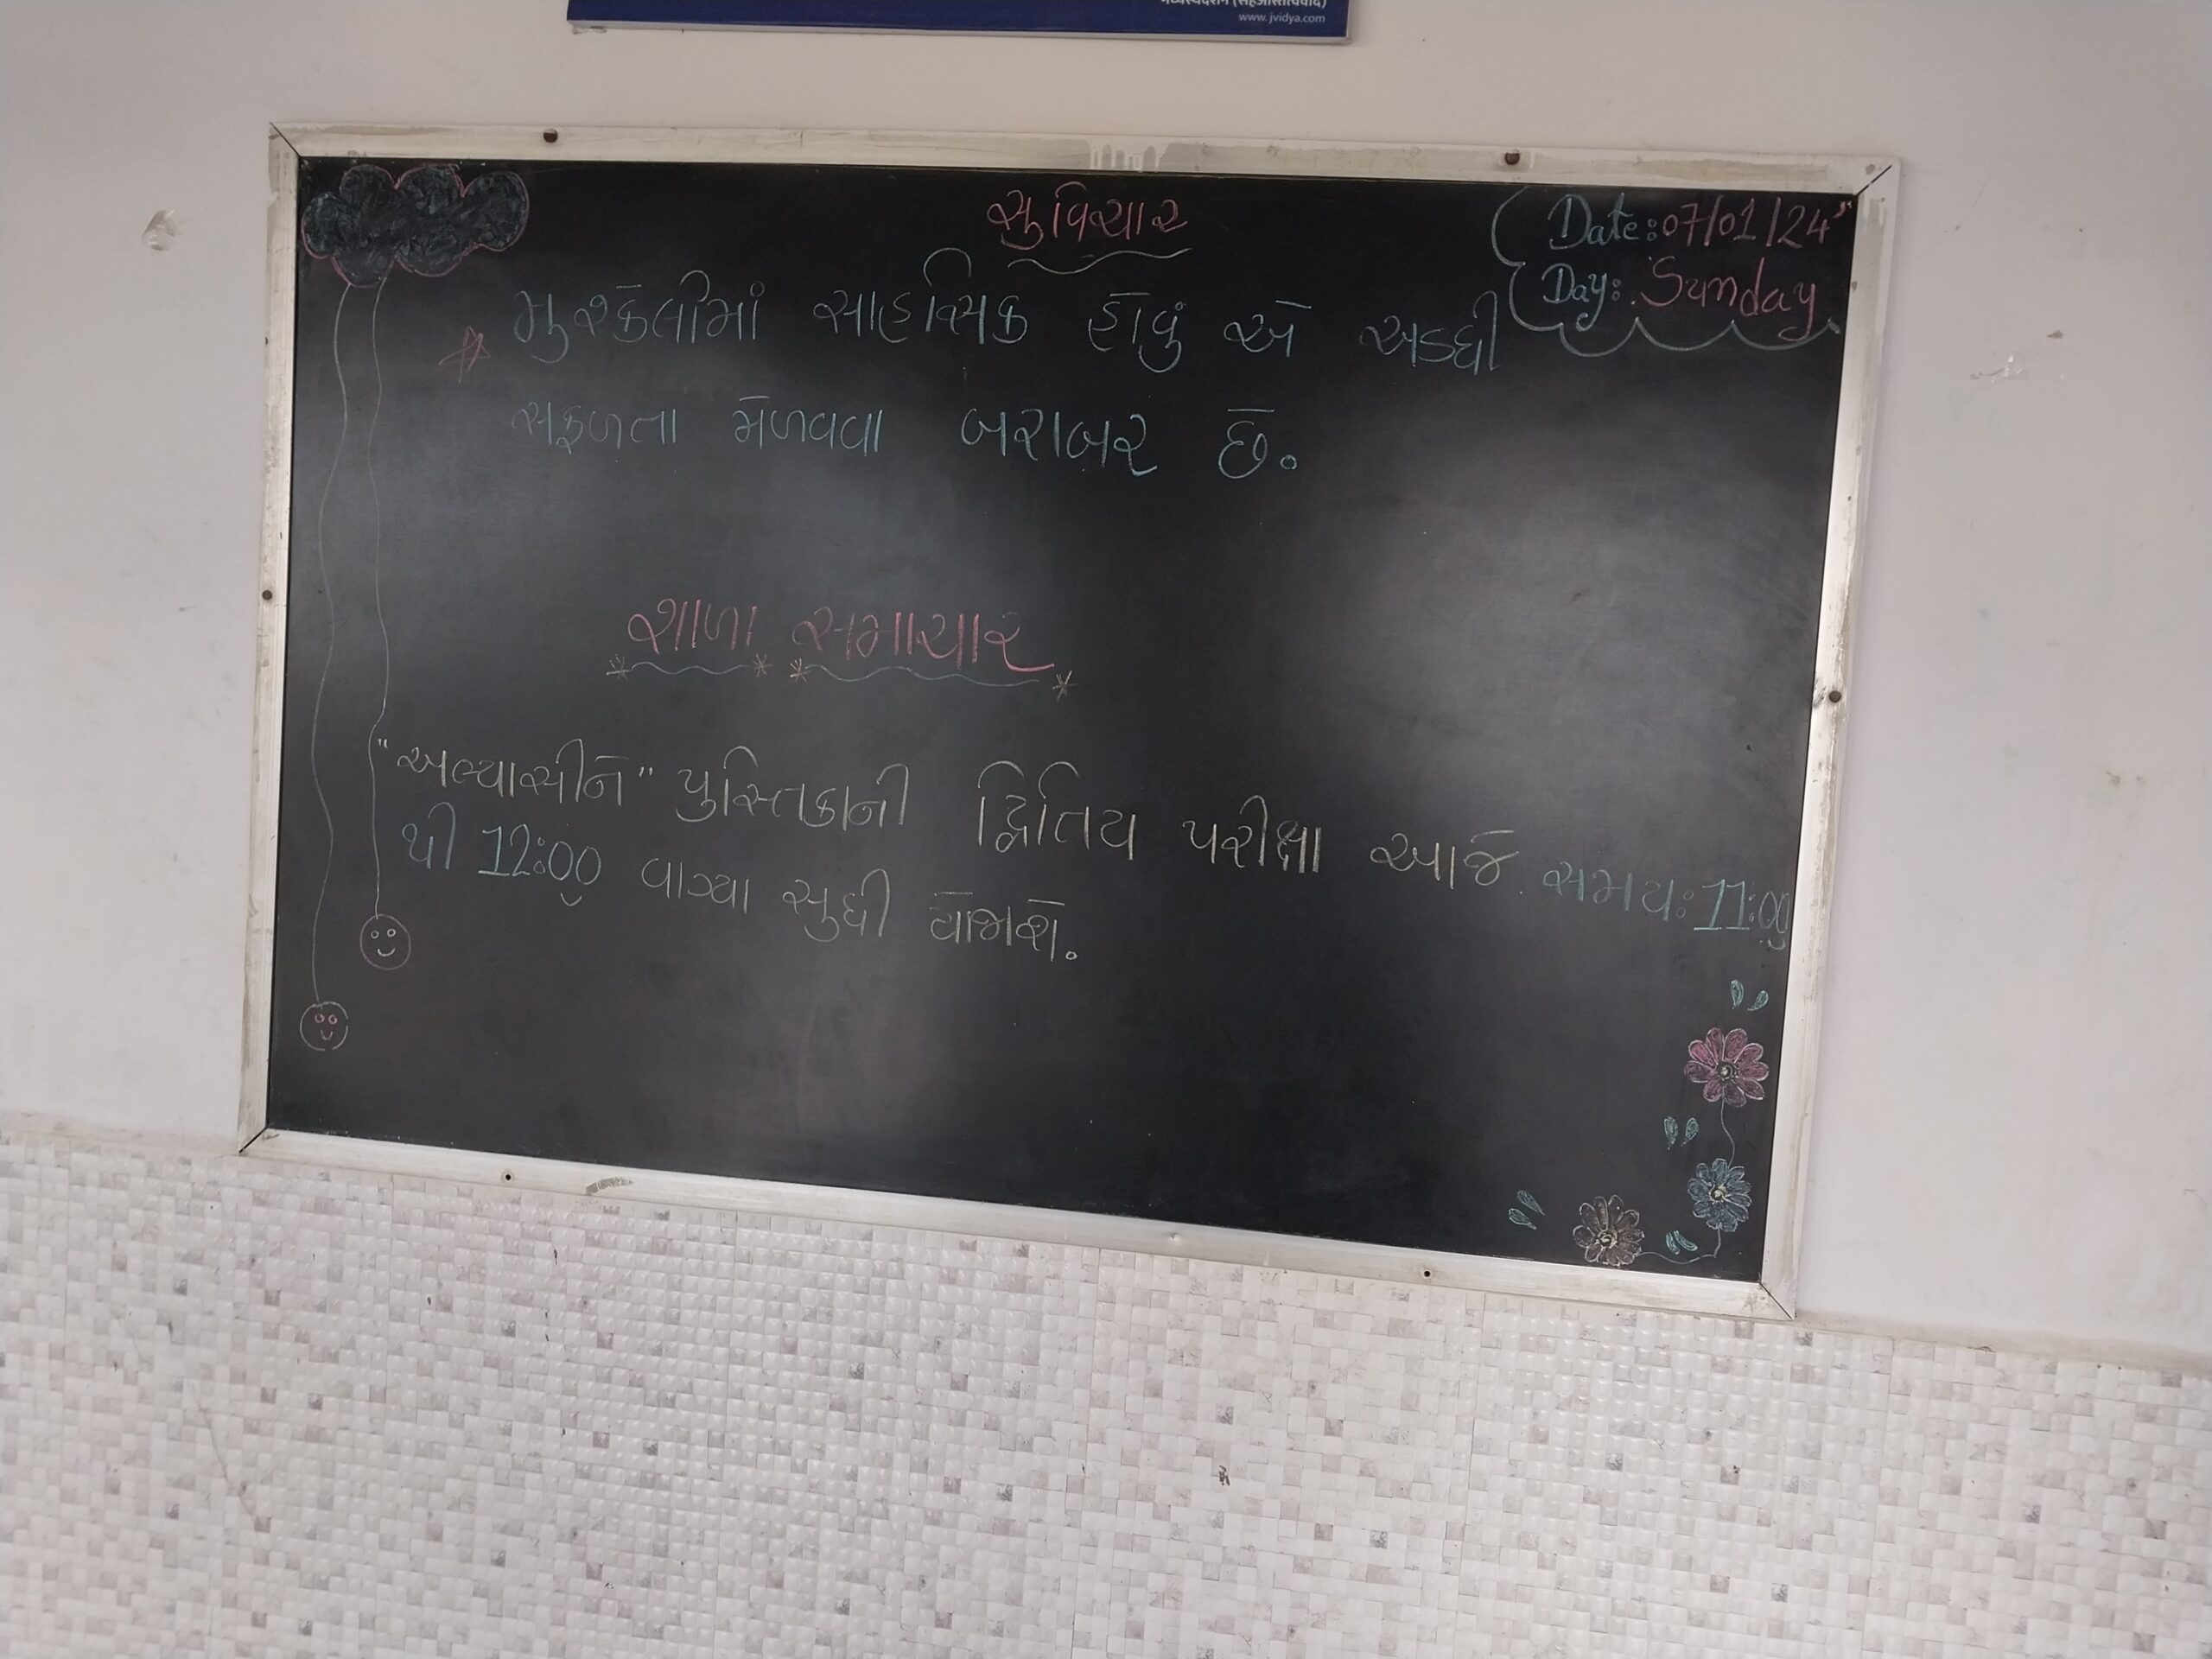 मध्यस्थदर्शन (सहअस्तित्ववाद)
www.jvidya.com
સુવિચાર
Date:07/01/24
Day: Sunday
મુશ્કેલીમાં સાહસિક હોવું એ અડધી
સફળતા મેળવવા બરાબર છે.
શાળા સમાચાર
"અભ્યાસીને" પુસ્તિકાની દ્વિતિય પરીક્ષા આજે સમય: 11:00
થી 12:00 વાગ્યા સુધી યોજાશે.